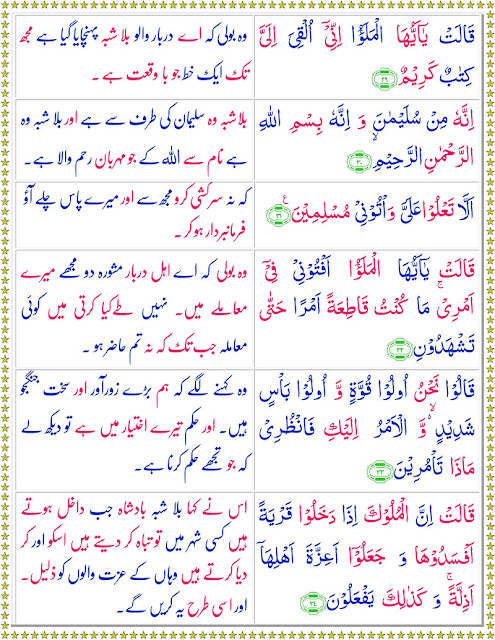 قَالَتْ يٰۤاَيُّهَا الْمَلَؤُا اِنِّيْۤ اُلْقِيَ اِلَيَّ
كِتٰبٌ كَرِيْمٌ ۝۲۹
وہ بولی کہ اے دربار والو بلا شبہ پہنچایا گیا ہے مجھ
تک ایک خط جو با وقعت ہے ۔
اِنَّهٗ مِنْ سُلَيْمٰنَ وَ اِنَّهٗ بِسْمِ اللّٰهِ
الرَّحْمٰنِ الرَّحِيْمِ ۝۳۰
بلا شبہ وہ سلیمان کی طرف سے ہے اور بلا شبہ وہ
ہے نام سے اللہ کے جو مہربان رحم والا ہے۔
اَلَّا تَعْلُوْا عَلَيَّ وَ اْتُوْنِيْ مُسْلِمِيْنَ ۝۳۱
کہ نہ سرکشی کرو مجھ سے اور میرے پاس چلے آؤ
فرمانبردار ہو کر ۔
قَالَتْ يٰۤاَيُّهَا الْمَلَؤُا اَفْتُوْنِيْ فِيْۤ
اَمْرِيْ ۚ مَا كُنْتُ قَاطِعَةً اَمْرًا حَتّٰى
تَشْهَدُوْنِ ۝۳۲
وہ بولی کہ اے اہل دربار مشورہ دو مجھے میرے
معاملے میں۔ نہیں طے کیا کرتی میں کوئی
معاملہ جب تک کہ نہ تم حاضر ہو ۔
قَالُوْا نَحْنُ اُولُوْا قُوَّةٍ وَّ اُولُوْا بَاْسٍ
شَدِيْدٍ ۙ۬ وَّ الْاَمْرُ اِلَيْكِ فَانْظُرِيْ
مَاذَا تَاْمُرِيْنَ ۝۳۳
وہ کہنے لگے کہ ہم بڑے زورآور اور سخت جنگجو
ہیں۔ اور حکم تیرے اختیار میں ہے تو دیکھ لے
کہ جو تجھے حکم کرنا ہے۔
قَالَتْ اِنَّ الْمُلُوْكَ اِذَا دَخَلُوْا قَرْيَةً
اَفْسَدُوْهَا وَ جَعَلُوْۤا اَعِزَّةَ اَهْلِهَاۤ
اَذِلَّةً ۚ وَ كَذٰلِكَ يَفْعَلُوْنَ ۝۳۴
اس نے کہا بلا شبہ بادشاہ جب داخل ہوتے
ہیں کسی شہر میں تو تباہ کر دیتے ہیں اسکو اور کر
دیا کرتے ہیں وہاں کے عزت والوں کو ذلیل۔
اور اسی طرح یہ کریں گے۔